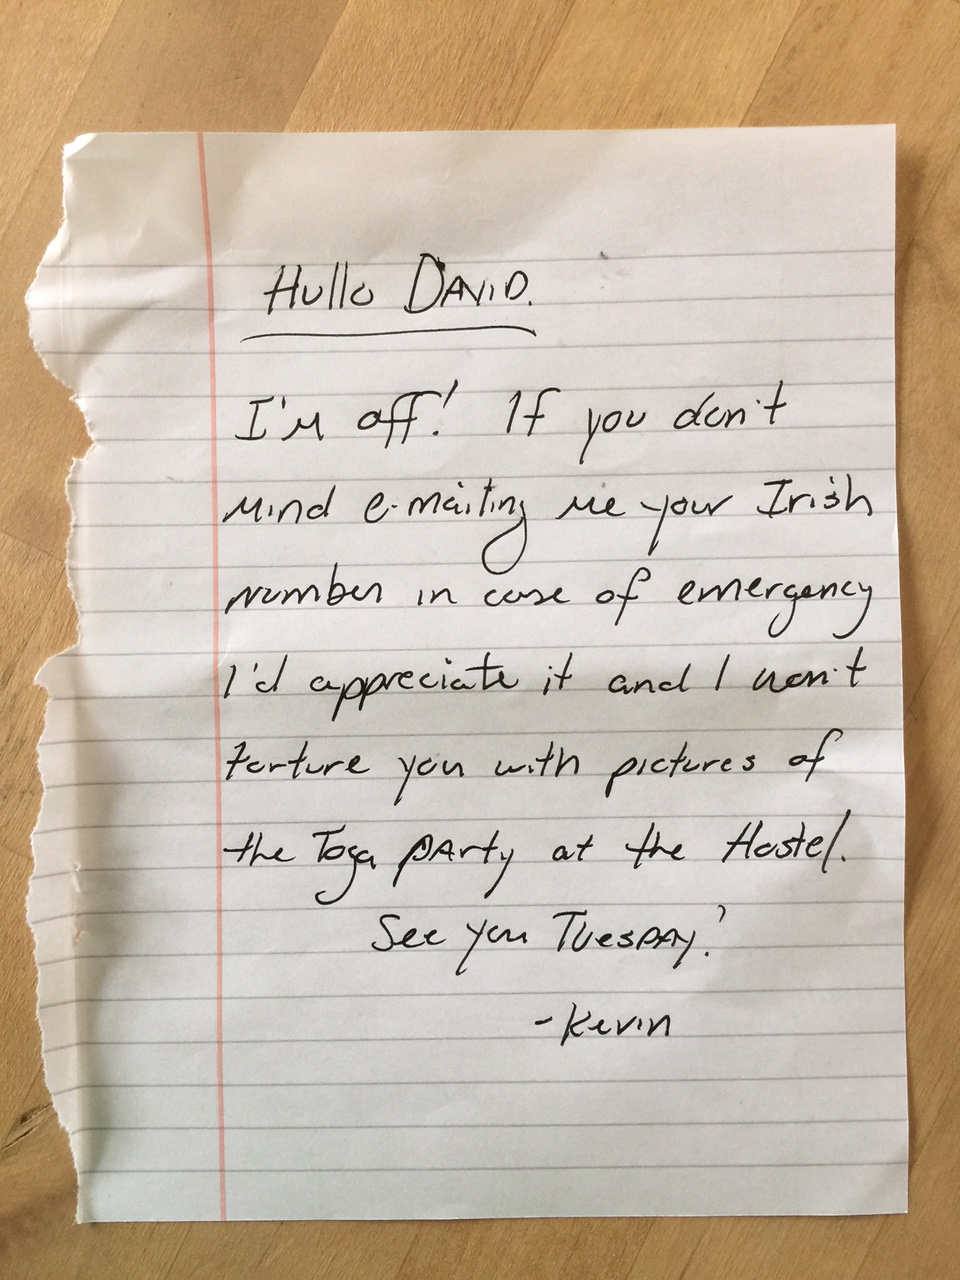 Hullo David.
I'm off! If you don't
mind e-mailing me your Irish
number in case of emergency
I'd appreciate it and I won't
torture you with pictures of
the Toga party at the Hostel.
See you Tuesday!
-Kevin